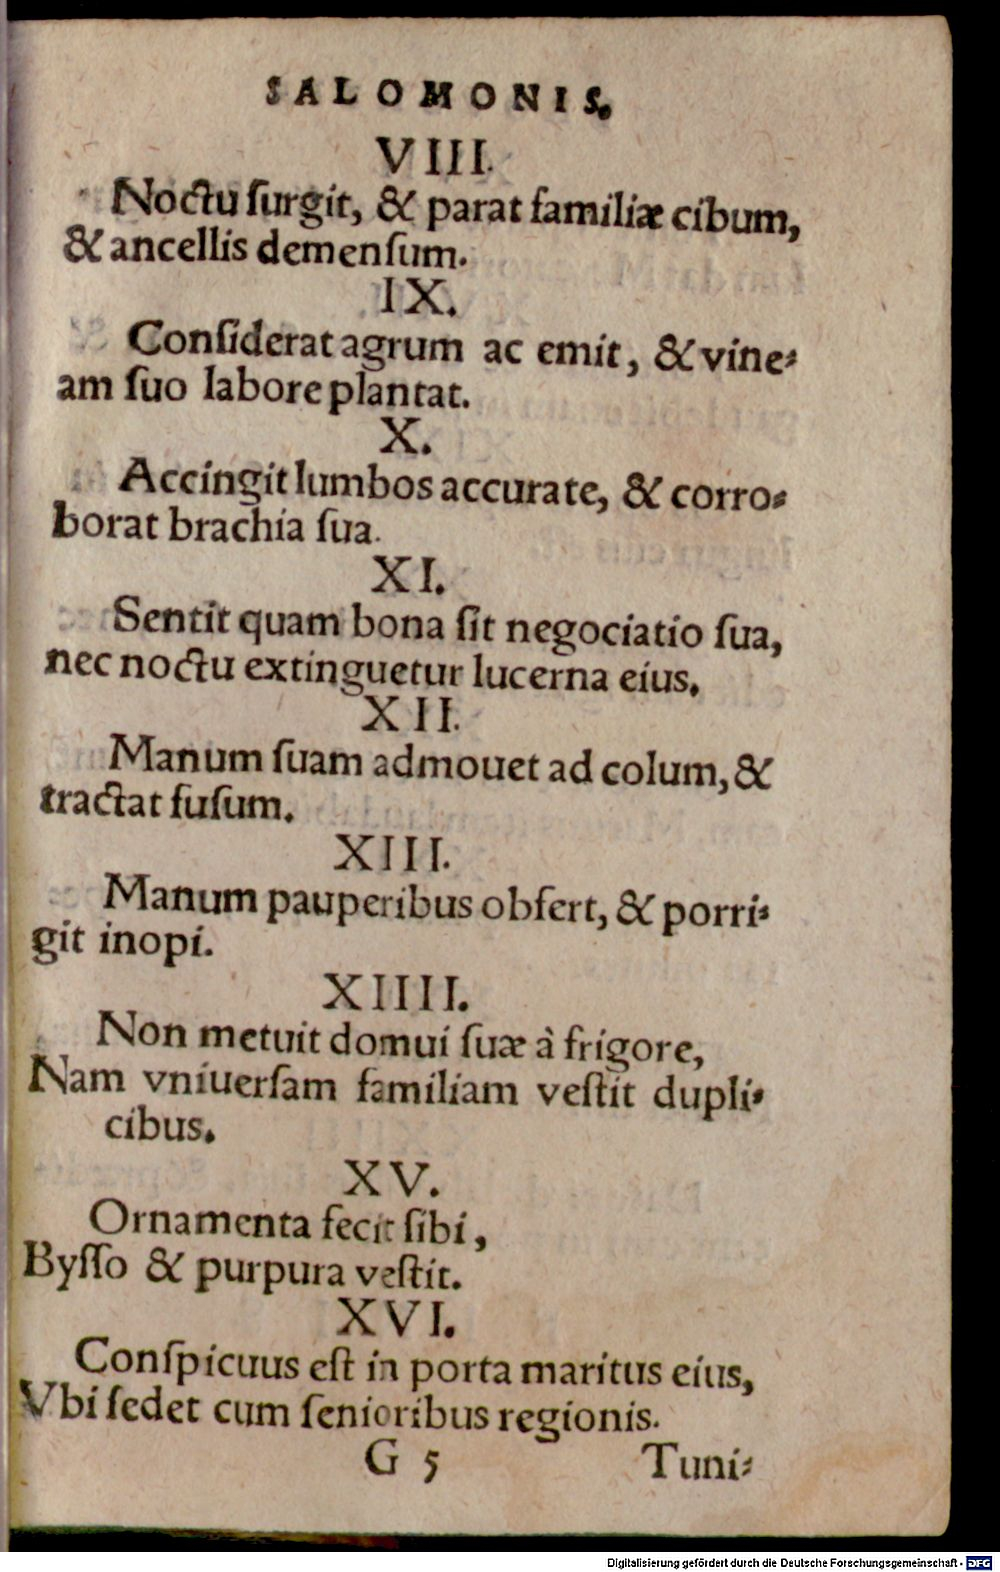 SALOMONIS.
VIII.
Noctu ſurgit, & parat familiæ cibum,
& ancellis demenſum.
IX.
Conſiderat agrum ac emit, & vine⸗
am ſuo labore plantat.
X.
Accingit lumbos accurate, & corro⸗
borat brachia ſua.
XI.
Sentit quam bona ſit negociatio ſua,
nec noctu extinguetur lucerna eius.
XII.
Manum ſuam admouet ad colum, &
tractat fuſum.
XIII.
Manum pauperibus obfert, & porri⸗
git inopi.
XIIII.
Non metuit domui ſuæ à frigore,
Nam vniuerſam familiam veſtit dupli⸗
cibus.
XV.
Ornamenta fecit ſibi,
Byſſo & purpura veſtit.
XVI.
Conſpicuus eſt in porta maritus eius,
Vbi ſedet cum ſenioribus regionis.
G 5 Tuni⸗
Digitalisierung gefördert durch die Deutsche Forschungsgemeinschaft - DFG